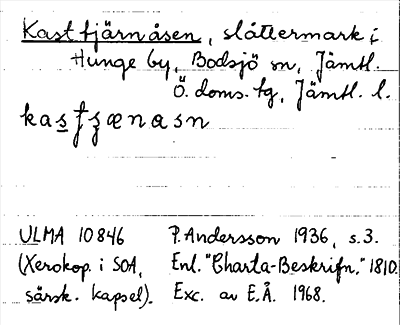 Kasttjärnåsen, slåttermark i
Hunge by, Bodsjö sn, Jämtl.
Ö. doms.tg, Jämtl. l.
ULMA 10846 P. Andersson 1936, s.3.
(Xerokop. i SOA, Enl. "Charta-Beskrifn." 1810
särsk. kapsel). Exc. av E.Å. 1968.